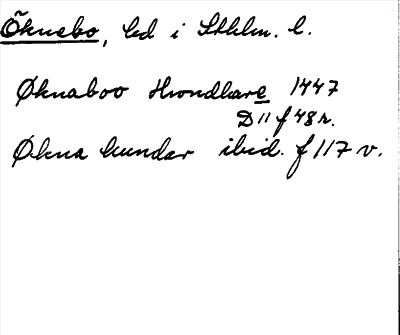 Öknebo, hd i Sthlm. l.
Øknaboo Hwndhare 1447
D 11 f 48 r.
Økna hundar ibid. f 117 v.